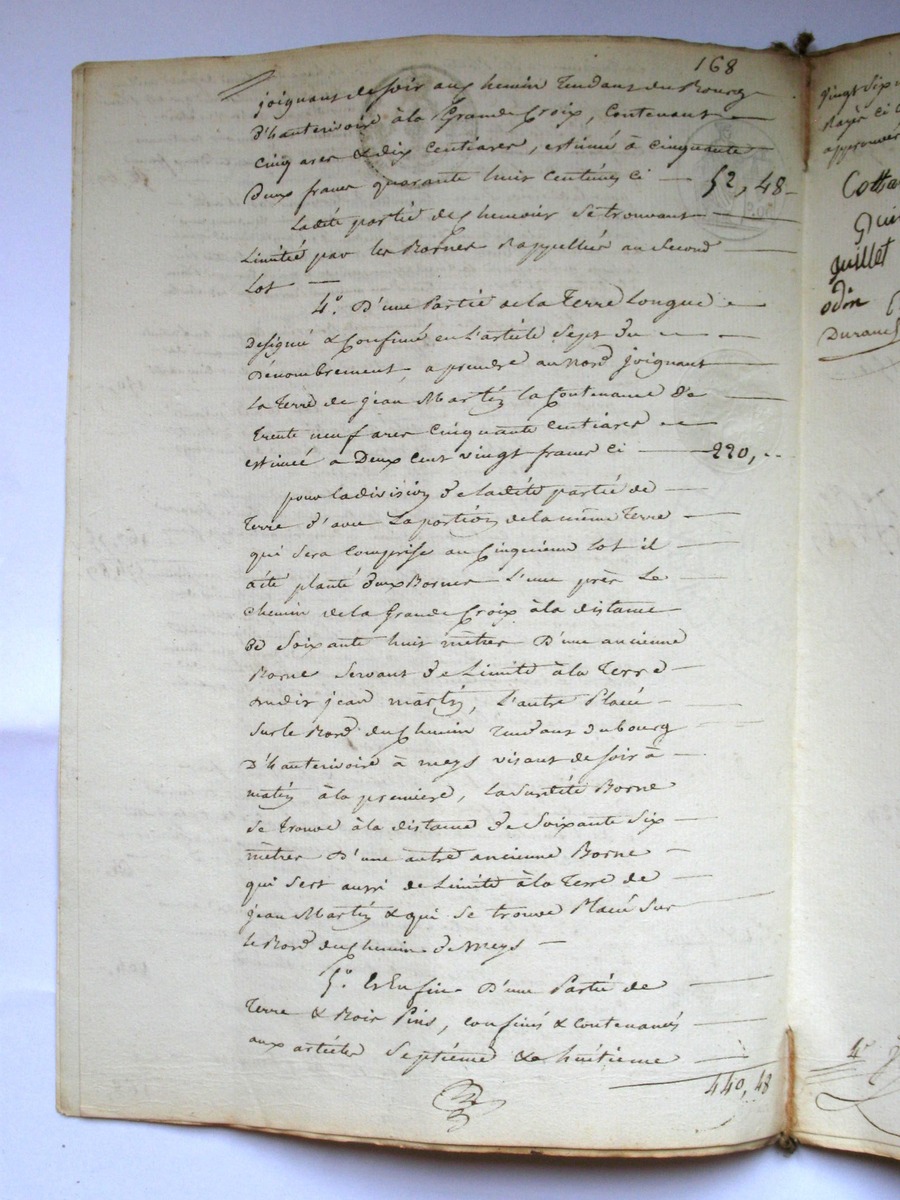 168
joignant de soir au chemin Tendant du Bourg
d'hauterivoire à la Grande Croix, Contenant
Cinq ares & dix Centiares, estimée à cinquante
Deux francs quarante huit Centimes ci — 52, 48
Ladite partie de chenevier se trouvant
Limitée par les Bornes Rappellées au Second
Lot —
4.° D'une Partie de la Terre Longue
designé & Confiné en L'article Sept du
Dénombrement, a prendre au Nord joignant
La Terre de jean Martin la Contenance de
Trente neuf ares Cinquante Centiares
estimée a Deux Cent vingt francs Ci — 220, ..
pour la division de ladite partie de
Terre d'avec La portion de la même Terre
qui sera Comprise au Cinquieme Lot il
a été planté deux Bornes L'une près Le
Chemin de la Grande Croix à la distance
de Soixante huit mètres D'une ancienne
Borne Servant de Limite à la Terre
dudit jean martin, L'autre Placée
Sur le Bord du Chemin Tendant du bourg
D'hauterivoire à meys visant de soir à
matin à la première, la Susdite Borne
Se trouve à la distance de Soixante Six
mètres D'une autre ancienne Borne
qui Sert aussi de Limite à la Terre de
jean Martin & qui Se trouve Placée Sur
le Bord du Chemin de Meys —
5.° Et Enfin D'une Partie de
Terre & Bois Pins, confinés & contenancés
aux articles Septième & huitieme
440, 48
vingt Six
Rayés Ci
Guillet
Odin
Durand
4e